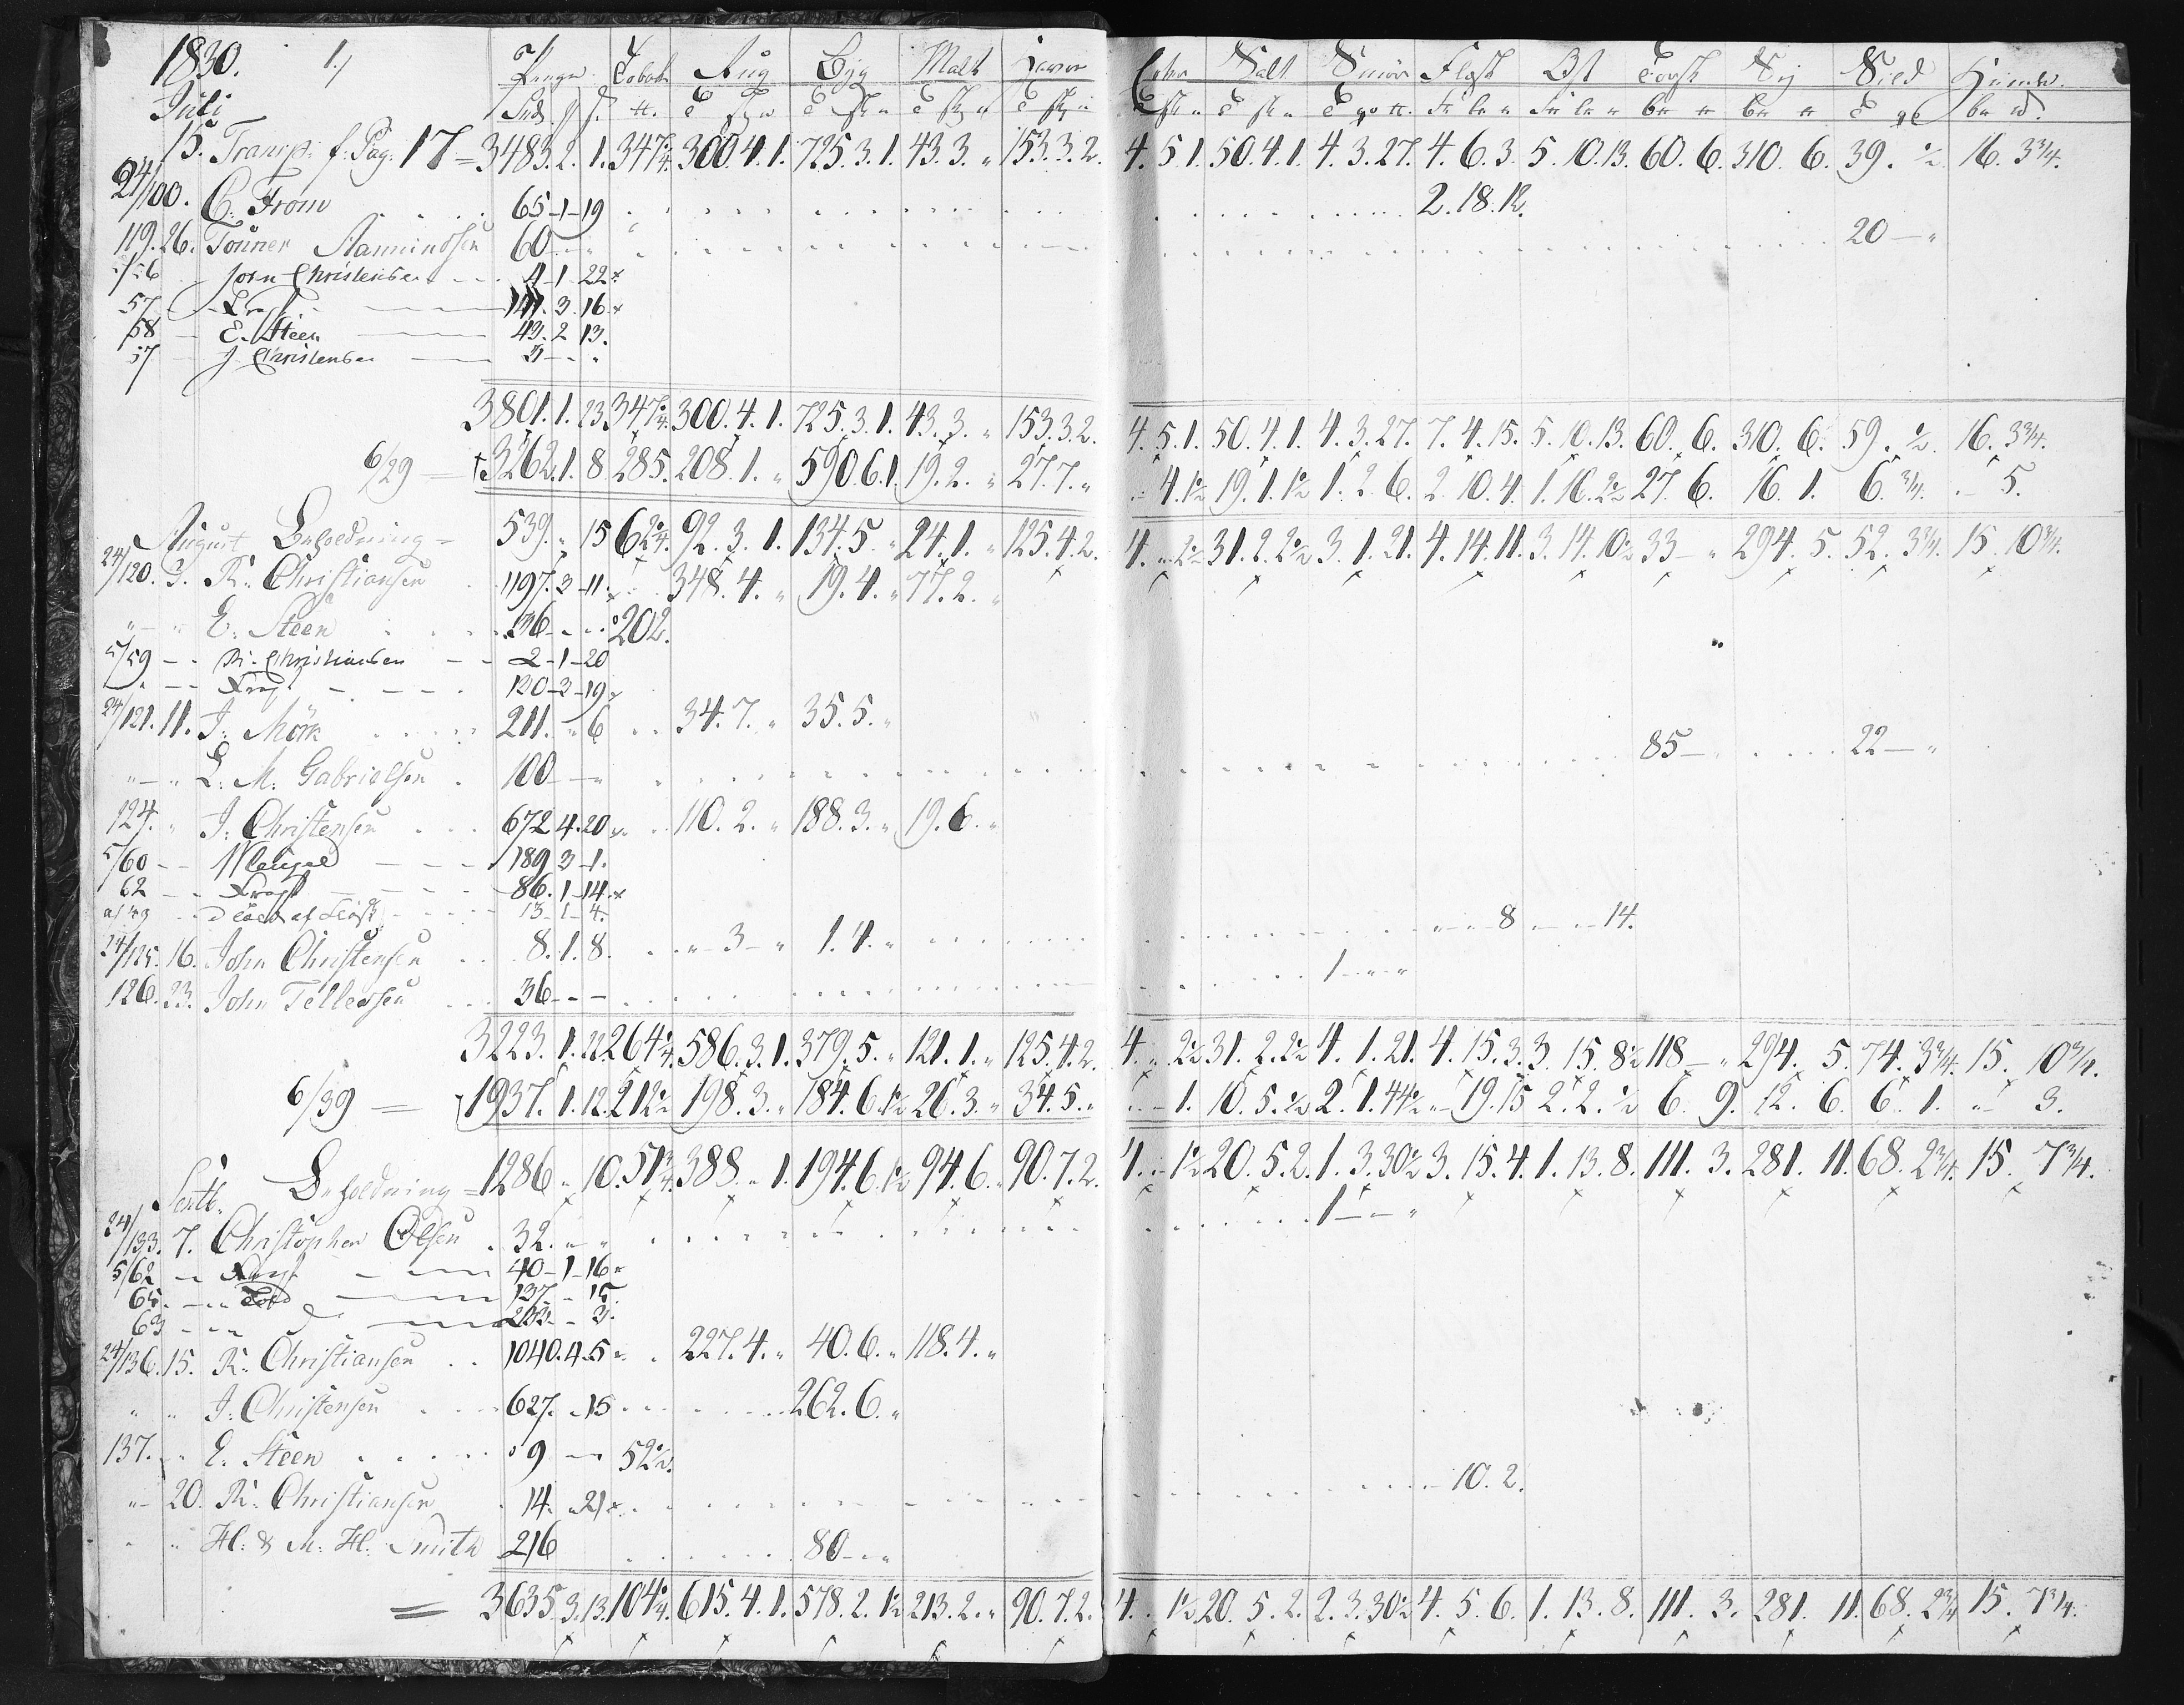 1830. 1., Penge Tobak Rug Byg Malt Havre Erter Salt Smör Flesk Ost Torsk Sej Sild Humle.
Juli
15. Transp: f: Pag: 17 = 3483. 2. 1. 347¾. 300. 4. 1. 725. 3. 1. 43. 3. „ 153. 3. 2. 4. 5. 1. 50. 4. 1. 4. 3. 27. 4. 6. 3. 5. 10. 13. 60. 6. 310. 6. 39. ½ 16. 3¾.
24/100. C. From 65-1-19 2. 18. 12.
119. 26. Tönner Aanundsen 60 - „ 20 - „
56 John Christensen 4-1-22
57 Fragt 141. 3. 16
58 E. Steen 43. 2 13.
57 J Christensen 3 - -
3801. 1. 23. 347¾. 300. 4. 1. 725. 3. 1. 43. 3. „ 153. 3. 2. 4. 5. 1. 50. 4. 1. 4. 3. 27. 7. 4. 15. 5. 10. 13. 60. 6. 310. 6. 59. ½. 16. 3¾.
6/29 = 3262. 1. 8. 285. 208. 1. „ 590. 6. 1. 19. 2. „ 27. 7. „ 4. 1½ 19. 1. 1½ 1. 2. 6. 2. 10. 4. 1. 16. 2½ 27. 6. 16. 1. 6. ¾. - 5.
August Beholdning = 539. „ 15 62¾. 92. 3. 1. 134. 5. „ 24. 1. „ 125. 4. 2. 4. „ 2½ 31. 2. 2½ 3. 1. 21. 4. 14. 11. 3. 14. 10½ 33 - „ 294. 5. 52. 3¾. 15. 10¾.
24/120. 3. R. Christiansen 1197. 3-11. 348. 4. „ 19. 4. „ 77. 2. „
„ - „ E. Steen 36 - - 202.
5/59 - - R. Christiansen - - 2-1-20
„ - - Fragt - - - 120-2-19
24/121. 11. J. Mörk 211. „ 6 34. 7. „ 35. 5. „
„ - „ L. M. Gabrielsen 100 - „ 85 - 22 - „
124. „ J. Christensen 672 4. 20 110. 2. „ 188. 3. „ 19. 6. „
5/60 - - 189 3-1.
62 - - Fragt - - 86. 1-14.
13-1-4.
24/125. 16. John Christensen 8. 1. 8. „ 3 - „ 1. 4. „ 8 - - 14.
126. 23. John Tellefsen 36 - - 1 - „ - „
3223. 1. 22. 264¼. 586. 3. 1. 379. 5. „ 121. 1. „ 125. 4. 2. 4. „ 2½ 31. 2. 2½ 4. 1. 21. 4. 15. 3. 3. 15. 8½ 118 - „ 294. 5. 74. 3¾. 15. 10¾.
6/39 = 1937. 1. 12. 212½ 198. 3. „ 184. 6. 1½ 26. 3. „ 34. 5. „ „ - 1. 10. 5. ½ 2. 1. 44½ „ 19. 15 2. 2. ½ 6. 9. 12. 6. 6. 1. „ 3.
Septb. Beholdning = 1286 „ 10. 51¾. 388. „ 1. 194. 6. 1½ 94. 6. „ 90. 7. 2. 4. „ 1½ 20. 5. 2. 1. 3. 30½ 3. 15. 4. 1. 13. 8. 111. 3. 281. 11. 68. 2¾. 15. 7¾.
24/133. 7. Christopher Olsen 32. „ „ 1 - - „
5/62 - Fragt - 40-1-16
65 - - 137 - 15
63 - - 233 - 3.
24/136. 15. R. Christiansen 1040. 4. 5 227. 4. „ 40. 6. „ 118. 4. „
„ „ J. Christensen 627. „ 15 262. 6. „
137. „ E. Steen 9 - 52½.
„ 20. R. Christiansen 14. „ 21 10. 2.
„ H. & M. H. Smith 216 80 - „
= 3635. 3. 13. 104¼. 615. 4. 1. 578. 2. 1½ 213. 2. „ 90. 7. 2. 4. „ 1½ 20. 5. 2. 2. 3. 30½ 4. 5. 6. 1. 13. 8. 111. 3. 281. 11. 68. 2¾ 15. 7¾.